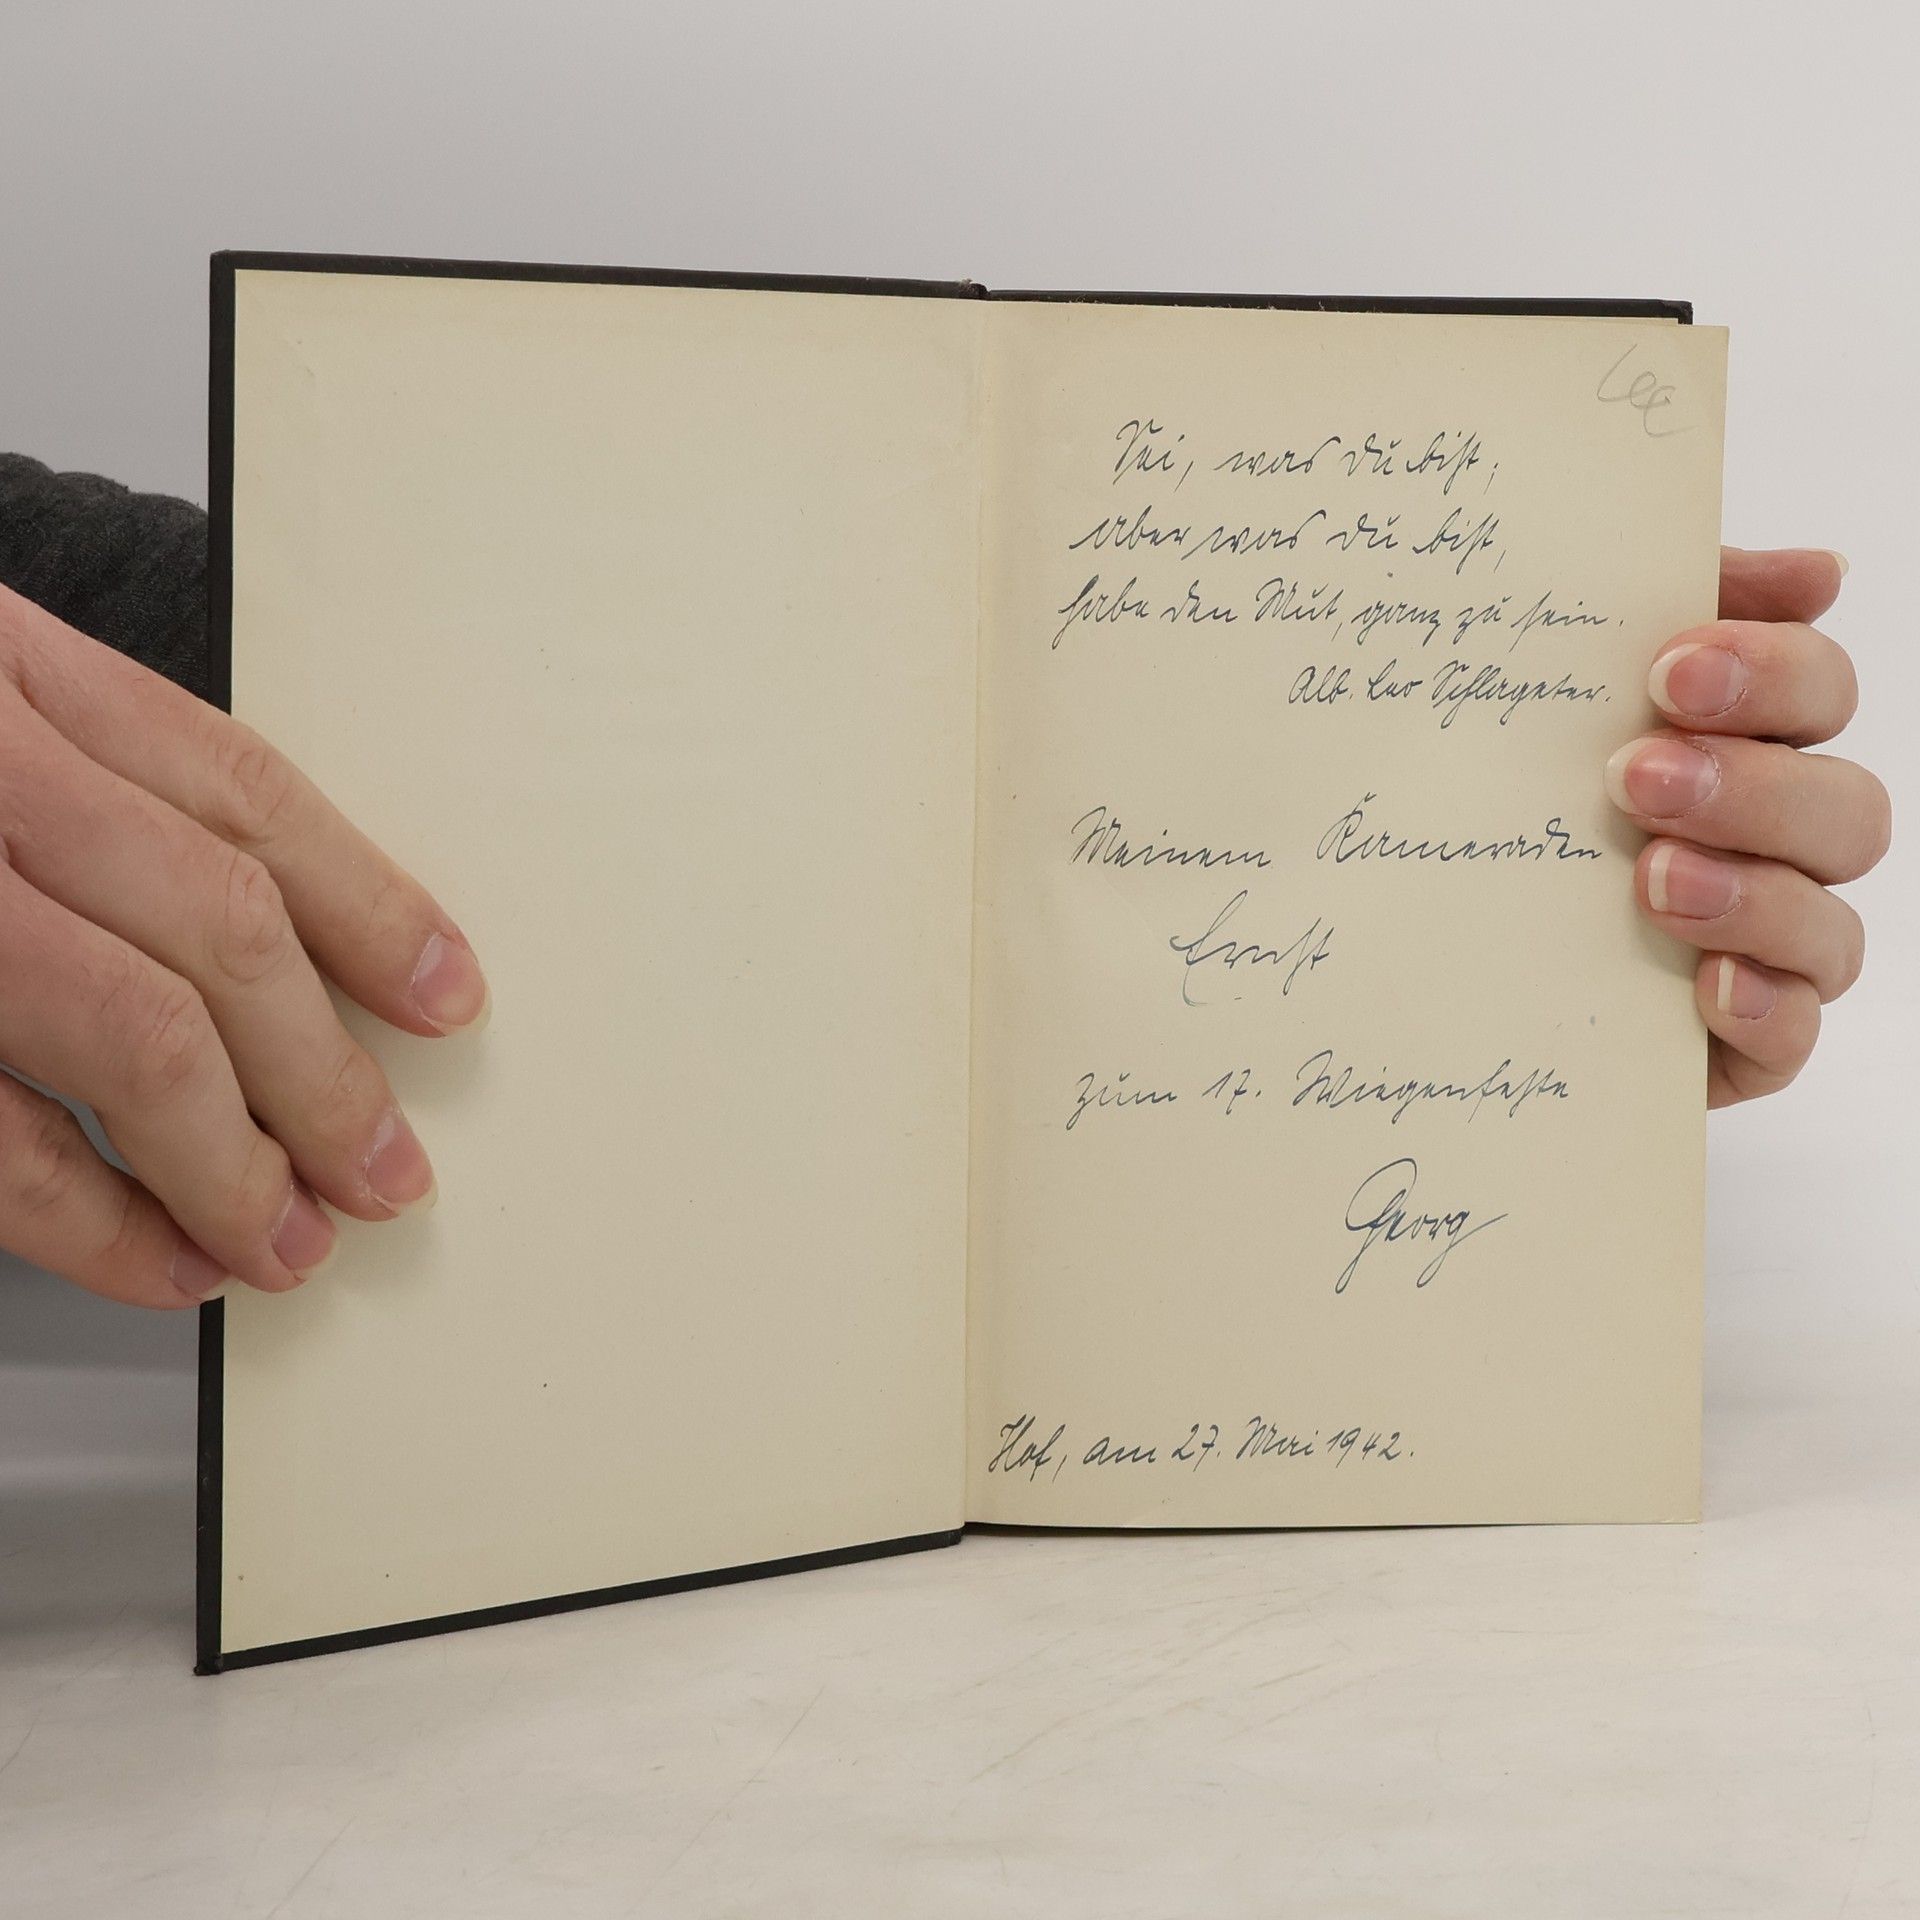 Sei, was du bist;
aber was du bist,
habe den Mut, ganz zu sein.
Alb. Leo Schlageter.
Meinem Kameraden
Ernst
zum 17. Wiegenfeste
Georg
Hof, am 27. Mai 1942.